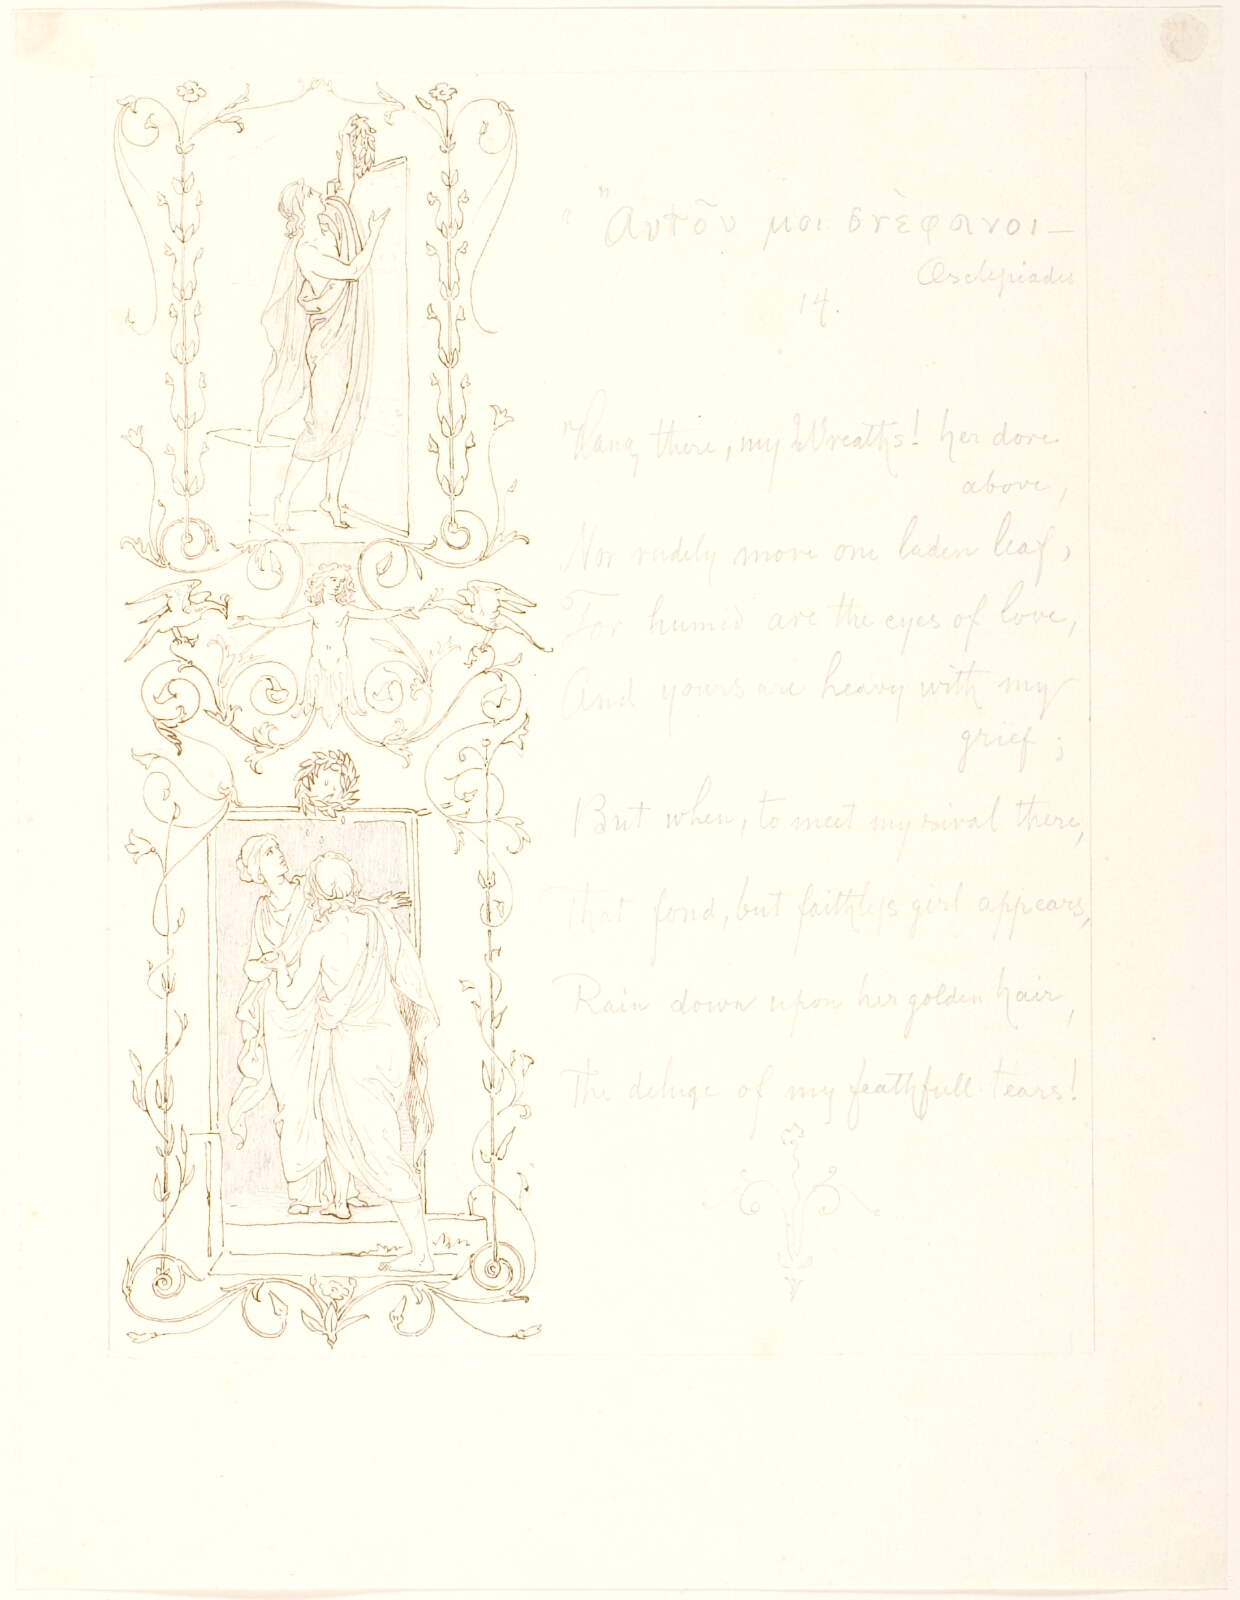 "Αυτȏυ μοι στὲφανοι—
Asclepiades
14.
"Hang there, my Wreaths! her dore
above,
Nor rudely move one laden leaf,
For humid are the eyes of love,
And yours are heavy with my
grief;
But when, to meet my rival there,
That fond, but faithless girl appears,
Rain down upon her golden hair,
The deluge of my feathfull tears!